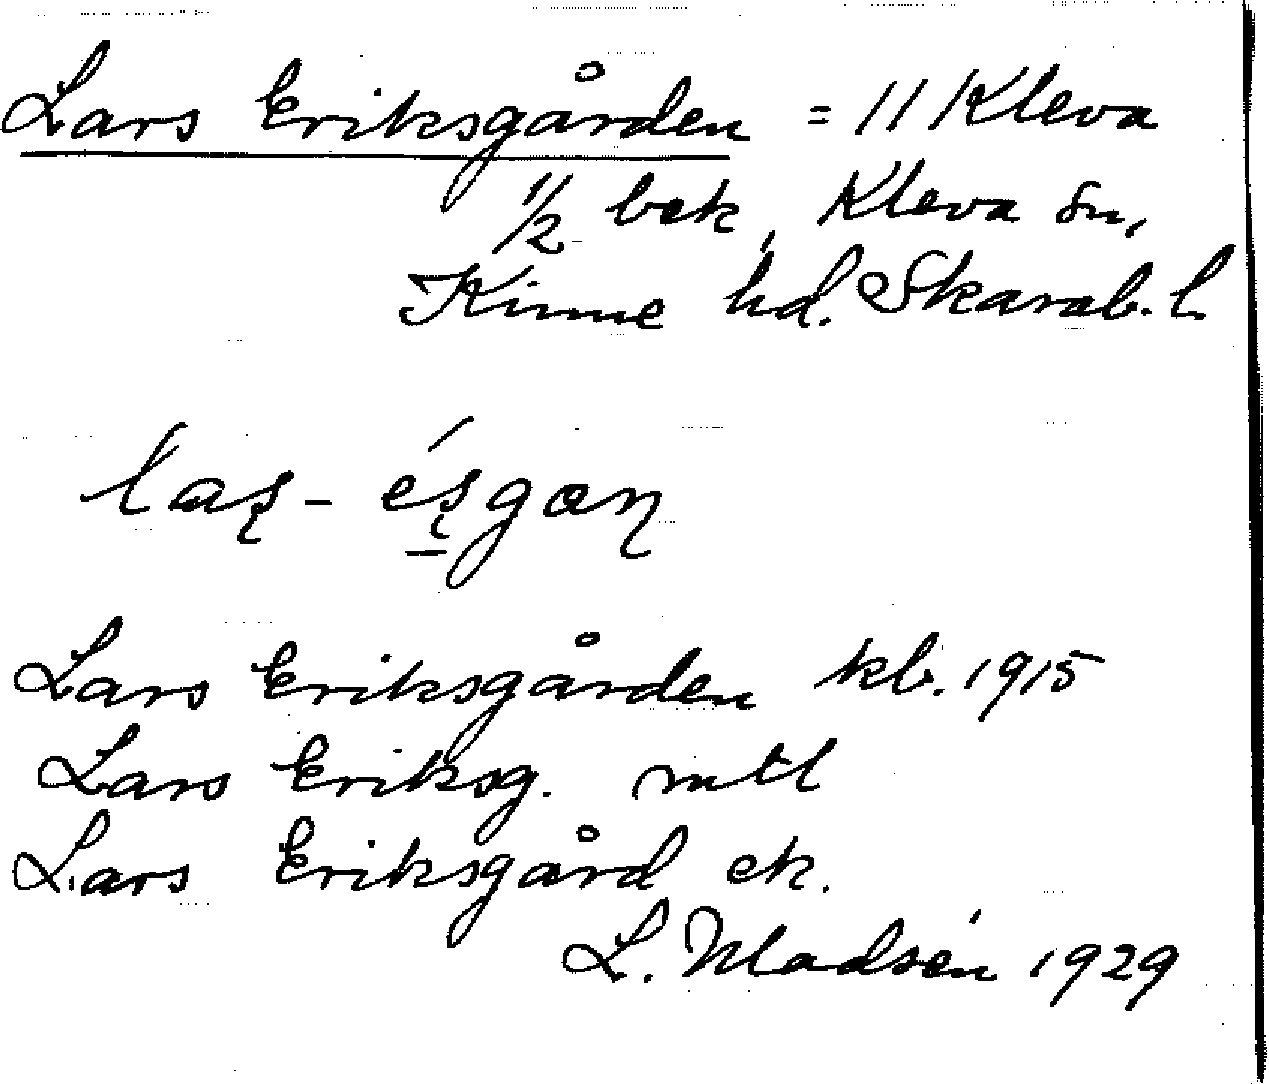 Lars Eriksgården = 11 Kleva
1/2 bek, Kleva sn,
Kinne hd. Skarab. l.
laʂ- éʂgaɳ
Lars Eriksgården kb. 1915
Lars Eriksg. mtl
Lars Eriksgård ek.
L. Madsén 1929